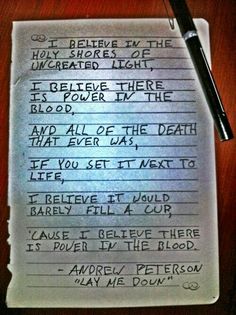 I BELIEVE IN THE
HOLY SHORES OF
UNCREATED LIGHT,
I BELIEVE THERE
IS POWER IN THE
BLOOD,
AND ALL OF THE DEATH
THAT EVER WAS,
IF YOU SET IT NEXT TO
LIFE,
I BELIEVE IT WOULD
BARELY FILL A CUP,
'CAUSE I BELIEVE THERE
IS POWER IN THE BLOOD.
- ANDREW PETERSON
"LAY ME DOWN"